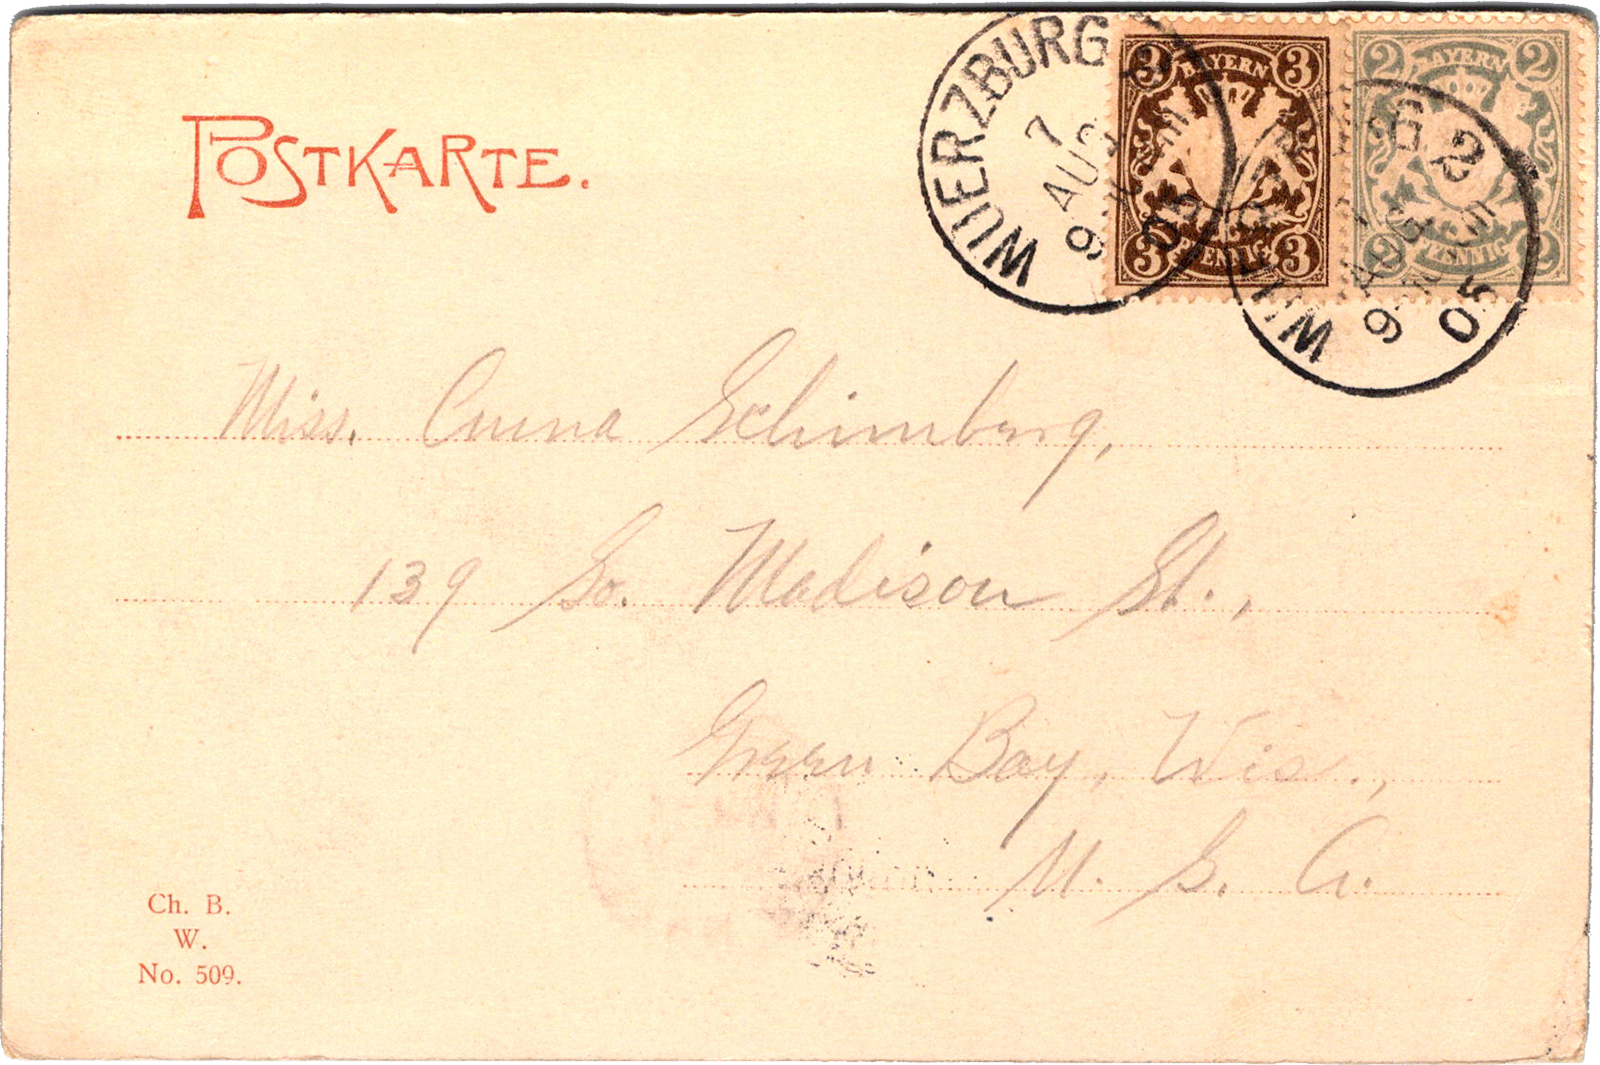 POSTKARTE.
WUERZBURG 2
7 AUG
9
05
3 BAYERN 3
3 PFENNIG 3
2 BAYERN 2
2 PFENNIG 2
2
AUG
9
05
Miss. Anna Schimberg,
139 So. Madison St.,
Green Bay, Wis.,
U. S. A.
Ch. B.
W.
No. 509.